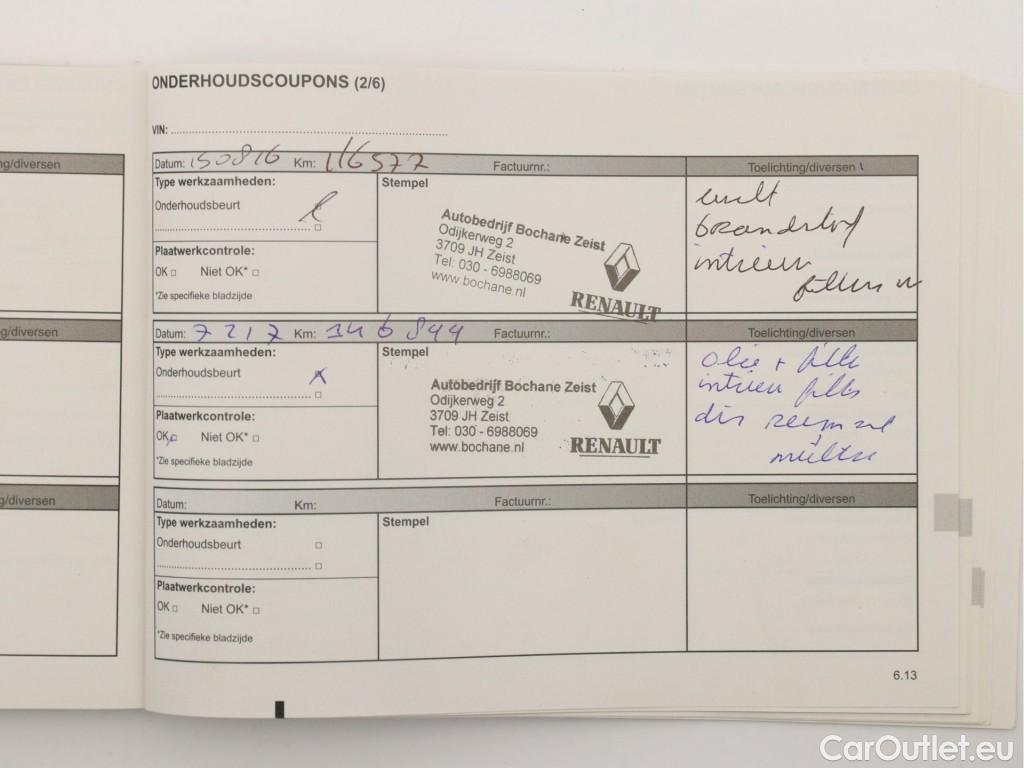 ONDERHOUDSCOUPONS (2/6)
VIN:
ng/diversen
Datum: 150816 Km: 116577 Factuurnr.: Toelichting/diversen
Type werkzaamheden:
Onderhoudsbeurt
Plaatwerkcontrole:
OK Niet OK*
*Zie specifieke bladzijde
Stempel
Autobedrijf Bochane Zeist
Odijkerweg 2
3709 JH Zeist
Tel: 030 - 6988069
www.bochane.nl
RENAULT
brandstof
intrieur
filters
g/diversen
Datum: 7 2 17 Km: 146844 Factuurnr.: Toelichting/diversen
Type werkzaamheden:
Onderhoudsbeurt
x
Plaatwerkcontrole:
OK Niet OK*
*Zie specifieke bladzijde
Stempel
Autobedrijf Bochane Zeist
Odijkerweg 2
3709 JH Zeist
Tel: 030 - 6988069
www.bochane.nl
RENAULT
olie + filter
intrieu filter
g/diversen
Datum: Km: Factuurnr.: Toelichting/diversen
Type werkzaamheden:
Onderhoudsbeurt
Plaatwerkcontrole:
OK Niet OK*
*Zie specifieke bladzijde
Stempel
6.13
CarOutlet.eu